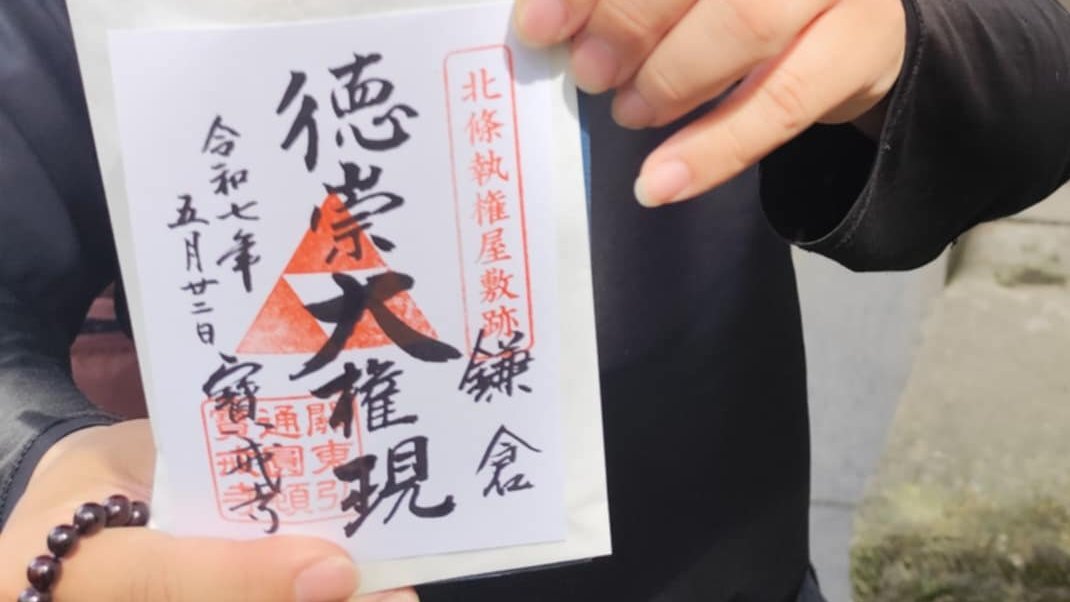 北條執権屋敷跡
鎌倉
徳崇大権現
令和七年
五月廿二日
寶戒寺
關東弘
通圓頓
寶戒寺